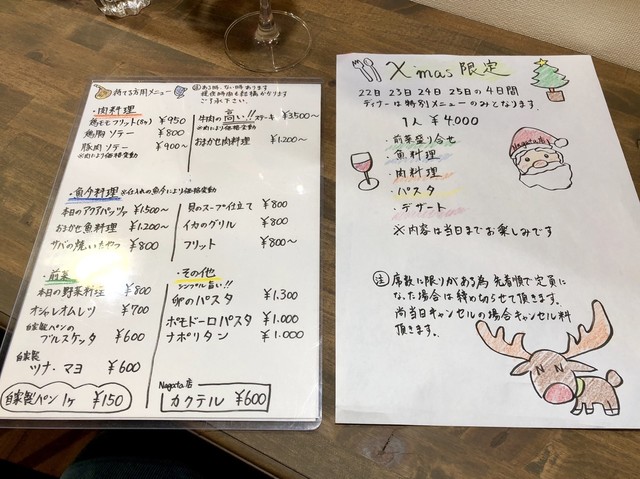 待てる方用メニュー
注 ある時、ない時あります
提供時間も結構かかります
ご了承下さい。
・肉料理
鶏モモフリット(5ヶ) ¥950
鶏胸ソテー ¥800
豚肉ソテー ¥900〜
※肉により価格変動
牛肉の高い!!ステーキ ¥3500〜
※肉により価格変動
おまかせ肉料理 ¥1.200〜
・魚介料理 ※仕入れの魚介により価格変動
本日のアクアパッツァ ¥1500〜
おまかせ魚料理 ¥1.200〜
サバの焼いたやつ ¥800
貝のスープ仕立て ¥800
イカのグリル ¥800
フリット ¥800〜
・前菜
本日の野菜料理 ¥800
オシャレオムレツ ¥700
自家製パンの
ブルスケッタ ¥600
自家製
ツナ・マヨ ¥600
自家製パン 1ヶ ¥150
・その他
シンプル旨い!!
卵のパスタ ¥1.300
ポモドーロパスタ ¥1.000
ナポリタン ¥1.000
Nagata店
カクテル ¥600
Xmas 限定
22日 23日 24日 25日の4日間
ディナーは特別メニューのみとなります。
1人 ¥4,000
・前菜盛り合せ
・魚料理
・肉料理
・パスタ
・デザート
※内容は当日までお楽しみです
Nagata店
注 席数に限りがある為 先着順で定員に
なった場合は締め切らせて頂きます。
尚当日キャンセルの場合キャンセル料
頂きます。